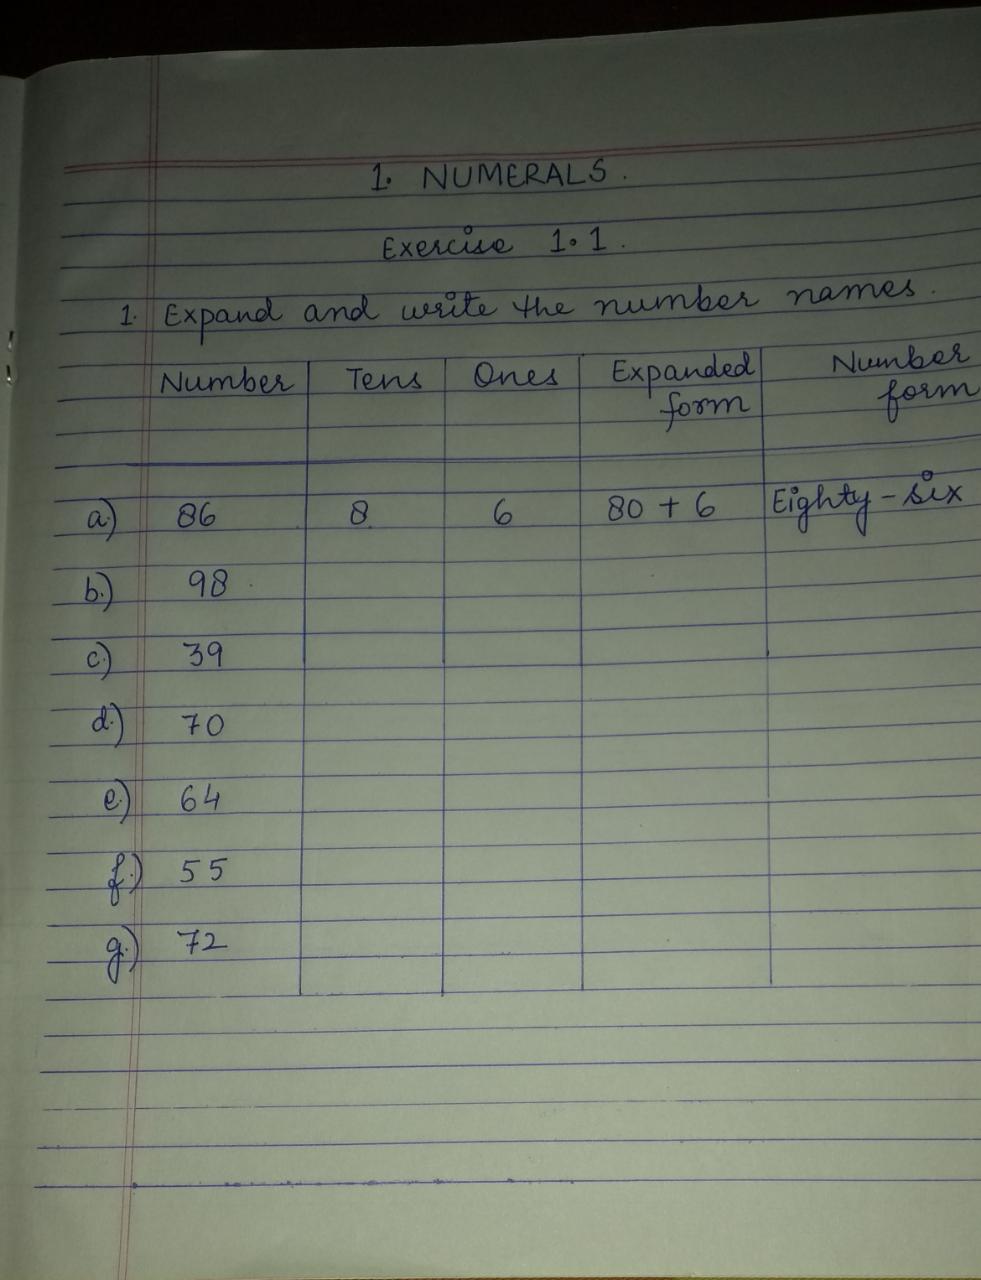 1. NUMERALS.
Exercise 1.1.
1. Expand and write the number names.
Number Tens Ones Expanded form Number form
a.) 86 8 6 80 + 6 Eighty-six
b.) 98
c.) 39
d.) 70
e.) 64
f.) 55
g.) 72